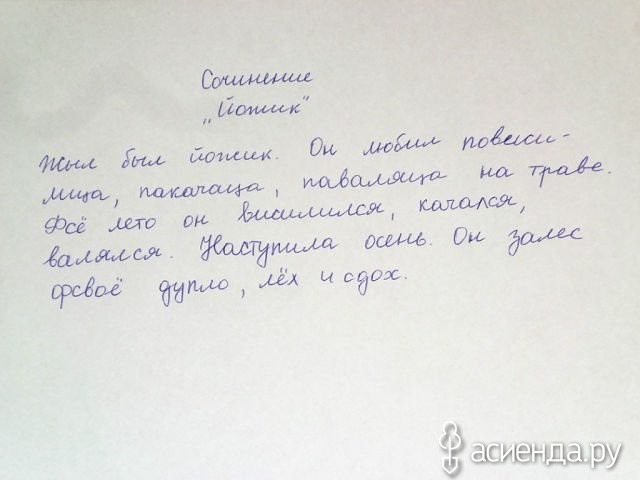 Сочинение
„Йожик"
Жыл был йожик. Он любил повиси-
лица, пакачаца, паваляца на траве.
Фсё лето он висилился, качался,
валялся. Наступила осень. Он залес
фсвоё дупло, лёх и сдох.
асиенда.ру